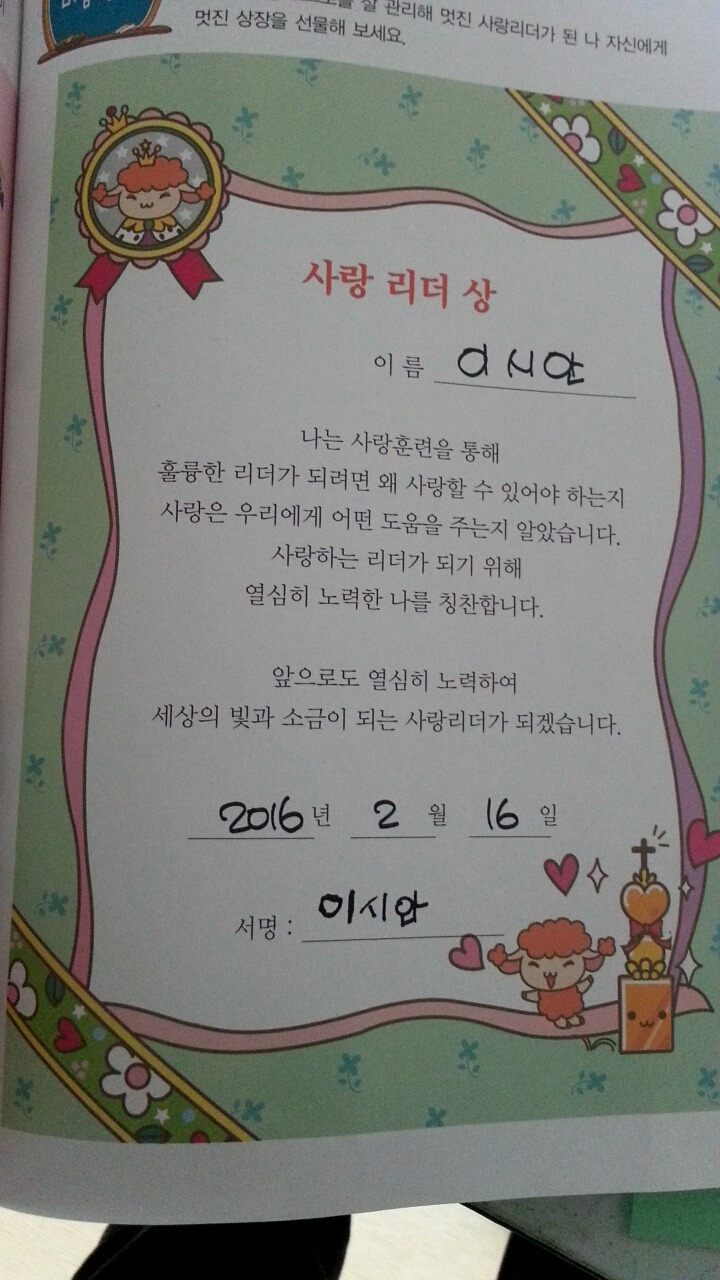 잘 관리해 멋진 사랑리더가 된 나 자신에게
멋진 상장을 선물해 보세요.
사랑 리더 상
이름 이시안
나는 사랑훈련을 통해
훌륭한 리더가 되려면 왜 사랑할 수 있어야 하는지
사랑은 우리에게 어떤 도움을 주는지 알았습니다.
사랑하는 리더가 되기 위해
열심히 노력한 나를 칭찬합니다.
앞으로도 열심히 노력하여
세상의 빛과 소금이 되는 사랑리더가 되겠습니다.
2016년 2월 16일
서명 : 이시안